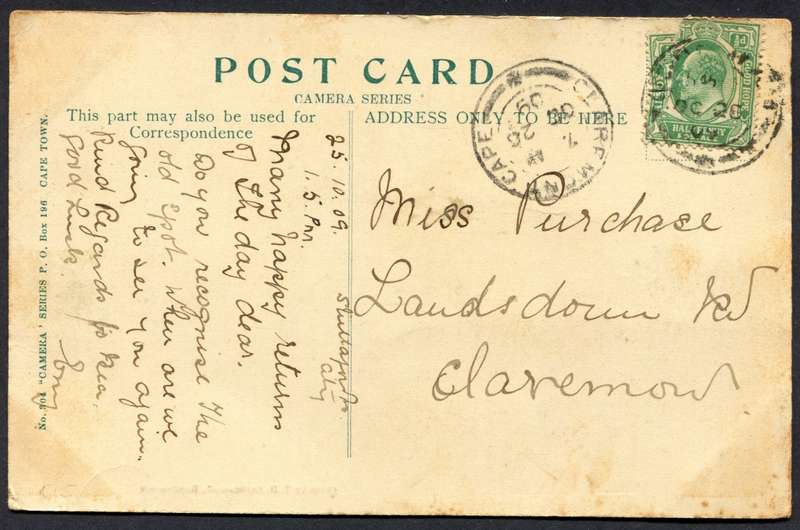 POST CARD
CAMERA SERIES
This part may also be used for
Correspondence
ADDRESS ONLY TO BE HERE
No. 104 "CAMERA" SERIES P. O. Box 196 CAPE TOWN.
25. 10. 09.
1.5. Pm.
City
Many happy returns
of the day dear.
Do you recognise the
old spot. When are we
going to see you again.
Kind Regards to
Good Luck.
Miss Purchase
Landsdown Rd
Claremont
CLAREMONT
CAPE
OC 26
09
GOOD HOPE
HALFPENNY